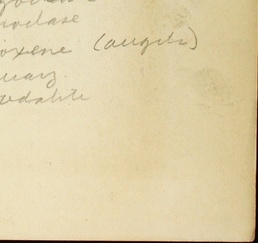 noclase
oxene (augite)
uarz
odalite